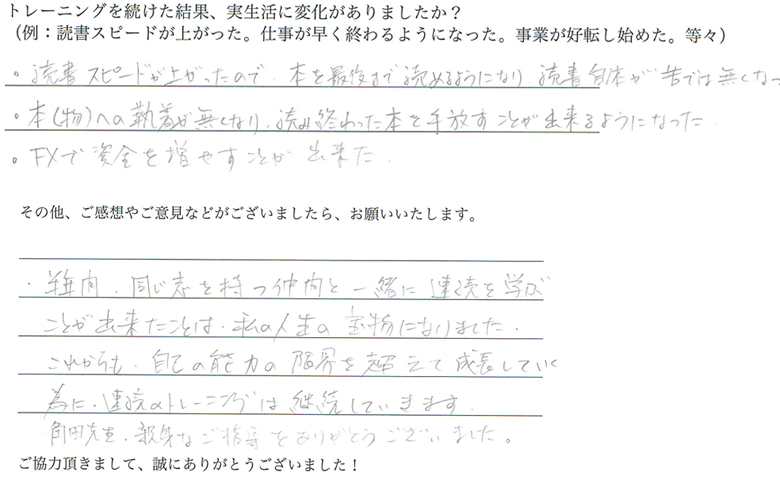 トレーニングを続けた結果、実生活に変化がありましたか？
（例：読書スピードが上がった。仕事が早く終わるようになった。事業が好転し始めた。等々）
。読書スピードが上がったので、本を最後まで読めるようになり、読書自体が苦では無くなっ
・本(物)への執着が無くなり、読み終わった本を手放すことが出来るようになった.
。FXで資金を増やすことが出来た.
その他、ご感想やご意見などがございましたら、お願いいたします。
・半年間、同じ志を持つ仲間と一緒に速読を学ぶ
ことが出来たことは、私の人生の宝物になりました.
これからも、自己の能力の限界を超えて成長していく
為に、速読のトレーニングは継続していきます.
角田先生、親身なご指導をありがとうございました。
ご協力頂きまして、誠にありがとうございました！